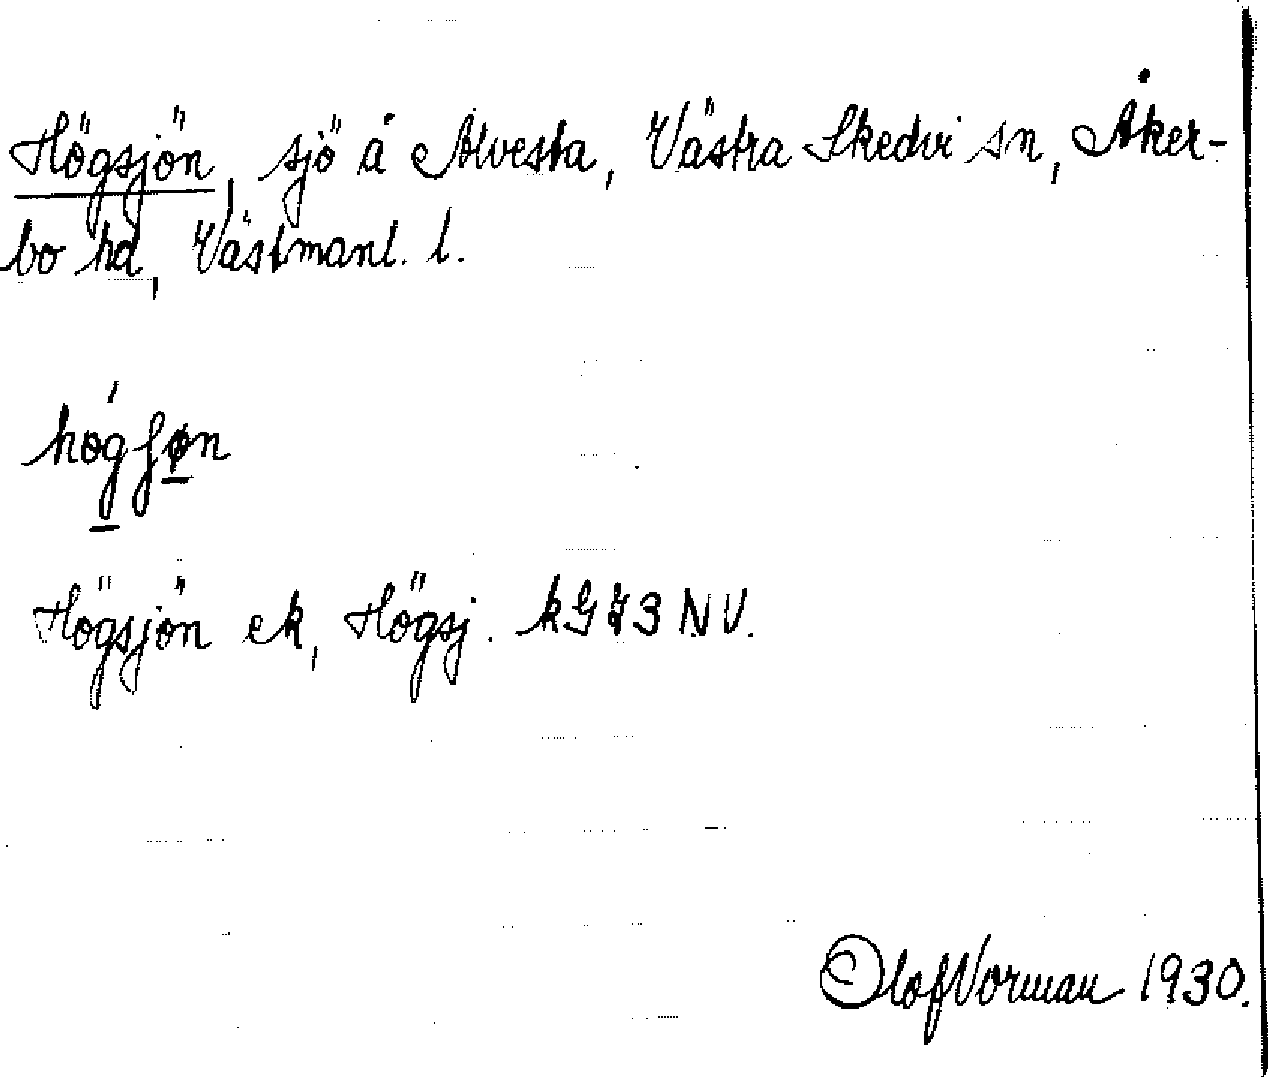 Högsjön, sjö å Alvesta, Västra Skedvi sn, Åker-
bo hd, Västmanl. l.
högʃøn
Högsjön ek, Högsj. kG73 NV.
Olof Vorman 1930.